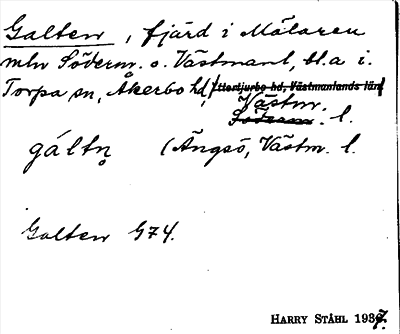 Galten, fjärd i Mälaren
mln Söderm. o. Västmanl, bl.a i.
Torpa sn, Åkerbo hd, Yttertjurbo hd, Västmanlands län
Västm.
Söderm. l.
gáltn̥ (Ängsö, Västm. l.
Galten G74.
HARRY STÅHL 1937.